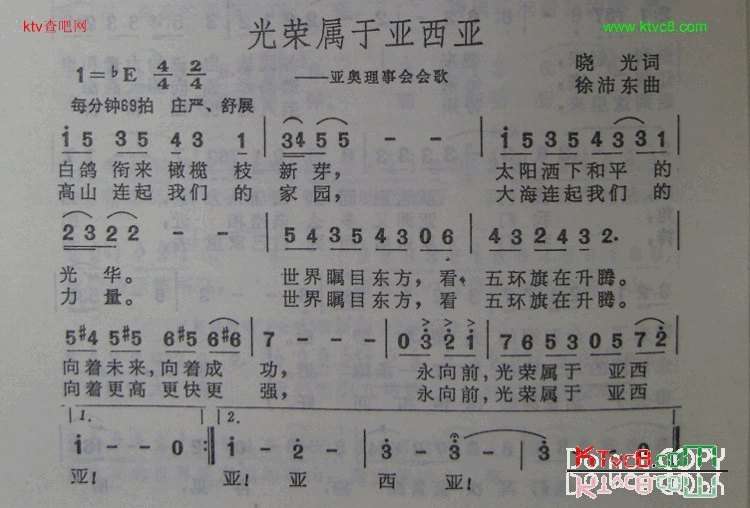 ktv查吧网
www.ktvc8.com
光荣属于亚西亚
1=♭E 4/4 2/4
——亚奥理事会会歌
晓光词
徐沛东曲
每分钟69拍 庄严、舒展
i 5 3 5 4 3 1 | 3 4 5 5 - - | i 5 3 5 4 3 3 1 |
白鸽 衔来 橄榄 枝 新芽， 太阳洒下和平 的
高山 连起 我们 的 家园， 大海连起我们 的
2 2 3 2 2 - - | 5 4 5 3 5 4 3 0 6 | 4 3 2 4 3 2. |
光 华。 世界瞩目东方，看 五环旗在升腾。
力 量。 世界瞩目东方，看 五环旗在升腾。
5 #4 5 #5 6 #5 6 #6 | 7 - - | 0 3 2 1 | 7 6 5 3 0 5 7 2 |
向着未来，向着成 功， 永向前，光荣属于 亚西
向着更高 更快更 强， 永向前，光荣属于 亚西
1. 2.
i - - 0 :|| i - 2 - | 3 - 3 - | 3 - 1 0 ||
亚！ 亚！ 亚 西 亚！
KTvc8.com
DON'T COPY